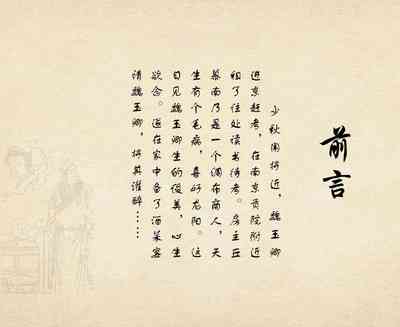 前言
少秋闱将近，魏玉卿
进京赶考，在南京贡院附近
租了住处读书待考。房主丘
慕南乃是一个绸布商人，天
生有个毛病，喜好龙阳。这
日见魏玉卿生的俊美，心生
欲念。遂在家中备了酒菜宴
请魏玉卿，将其灌醉……